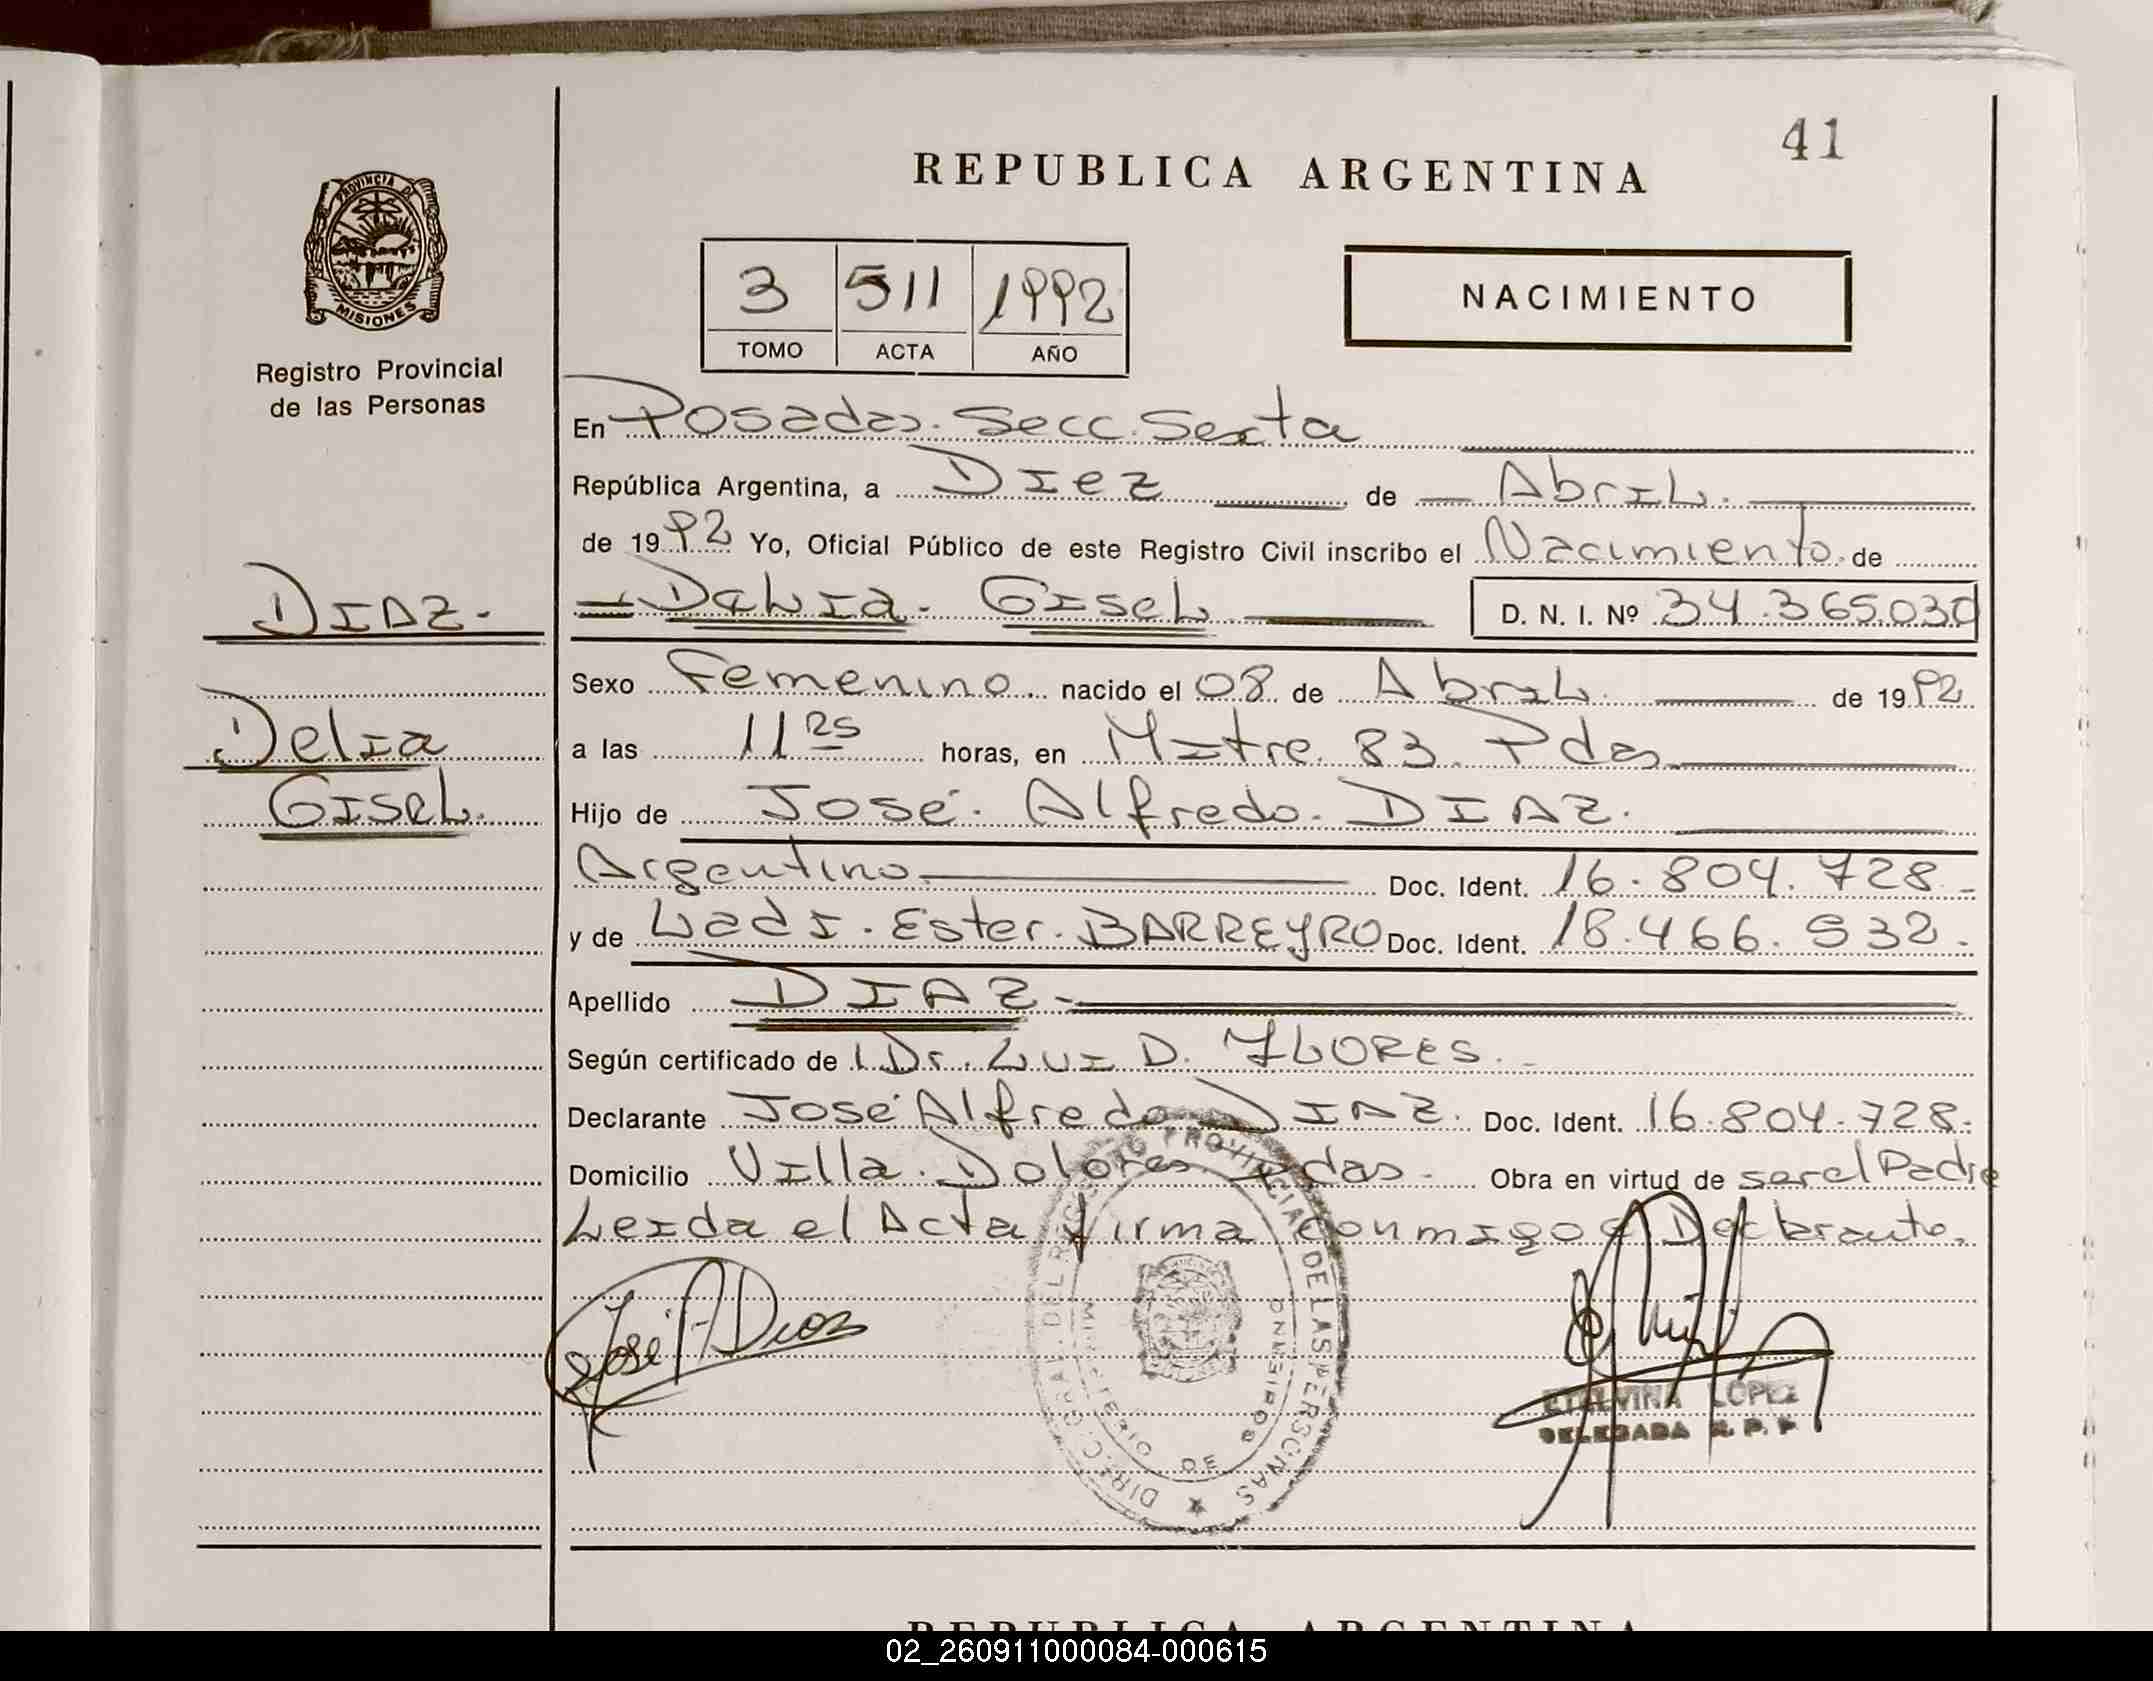 41
REPUBLICA ARGENTINA
PROVINCIA DE
MISIONES
Registro Provincial
de las Personas
3 511 1992
TOMO ACTA AÑO
NACIMIENTO
En Posadas. Secc. Sexta
República Argentina, a Diez de Abril.
de 1992 Yo, Oficial Público de este Registro Civil inscribo el Nacimiento. de
Dalia. Gisel D. N. I. Nº 34.365.030
DIAZ.-
Delia
Gisel.
Sexo Femenino nacido el 08 de Abril. de 1992
a las 11 25 horas, en Mitre. 83. Pdas
Hijo de José. Alfredo. DIAZ.
Argentino Doc. Ident. 16.804.728-
y de Ladi. Ester. BARREYRO Doc. Ident. 18.466.532.-
Apellido DIAZ-
Según certificado de l Dr. Lui D. FLORES.-
Declarante José Alfredo DIAZ. Doc. Ident. 16.804.728.-
Domicilio Villa. Dolores Pdas. Obra en virtud de ser el Padre
Leida el Acta firma conmigo el Declarante.
José A Diaz
DIREC. GRAL. DEL REGISTRO PROVINCIAL DE LAS PERSONAS
MINISTERIO DE GOBIERNO
ETELVINA LOPEZ
DELEGADA R. P. P.
REPUBLICA ARGENTINA
02_260911000084-000615